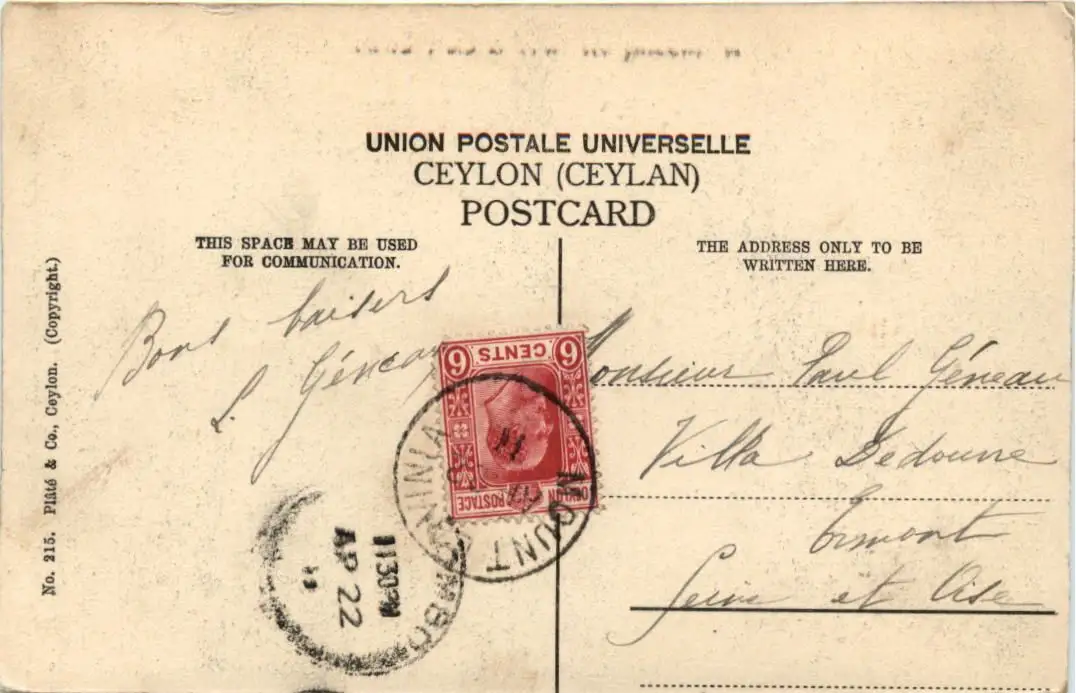 UNION POSTALE UNIVERSELLE
CEYLON (CEYLAN)
POSTCARD
THIS SPACE MAY BE USED
FOR COMMUNICATION.
THE ADDRESS ONLY TO BE
WRITTEN HERE.
Bons baisers
No. 215. Plâté & Co., Ceylon. (Copyright.)
6 CENTS 6
CEYLON POSTAGE
MOUNT
AP 22
11
Monsieur Paul Géneau
Villa
Ermont
Seine et Oise